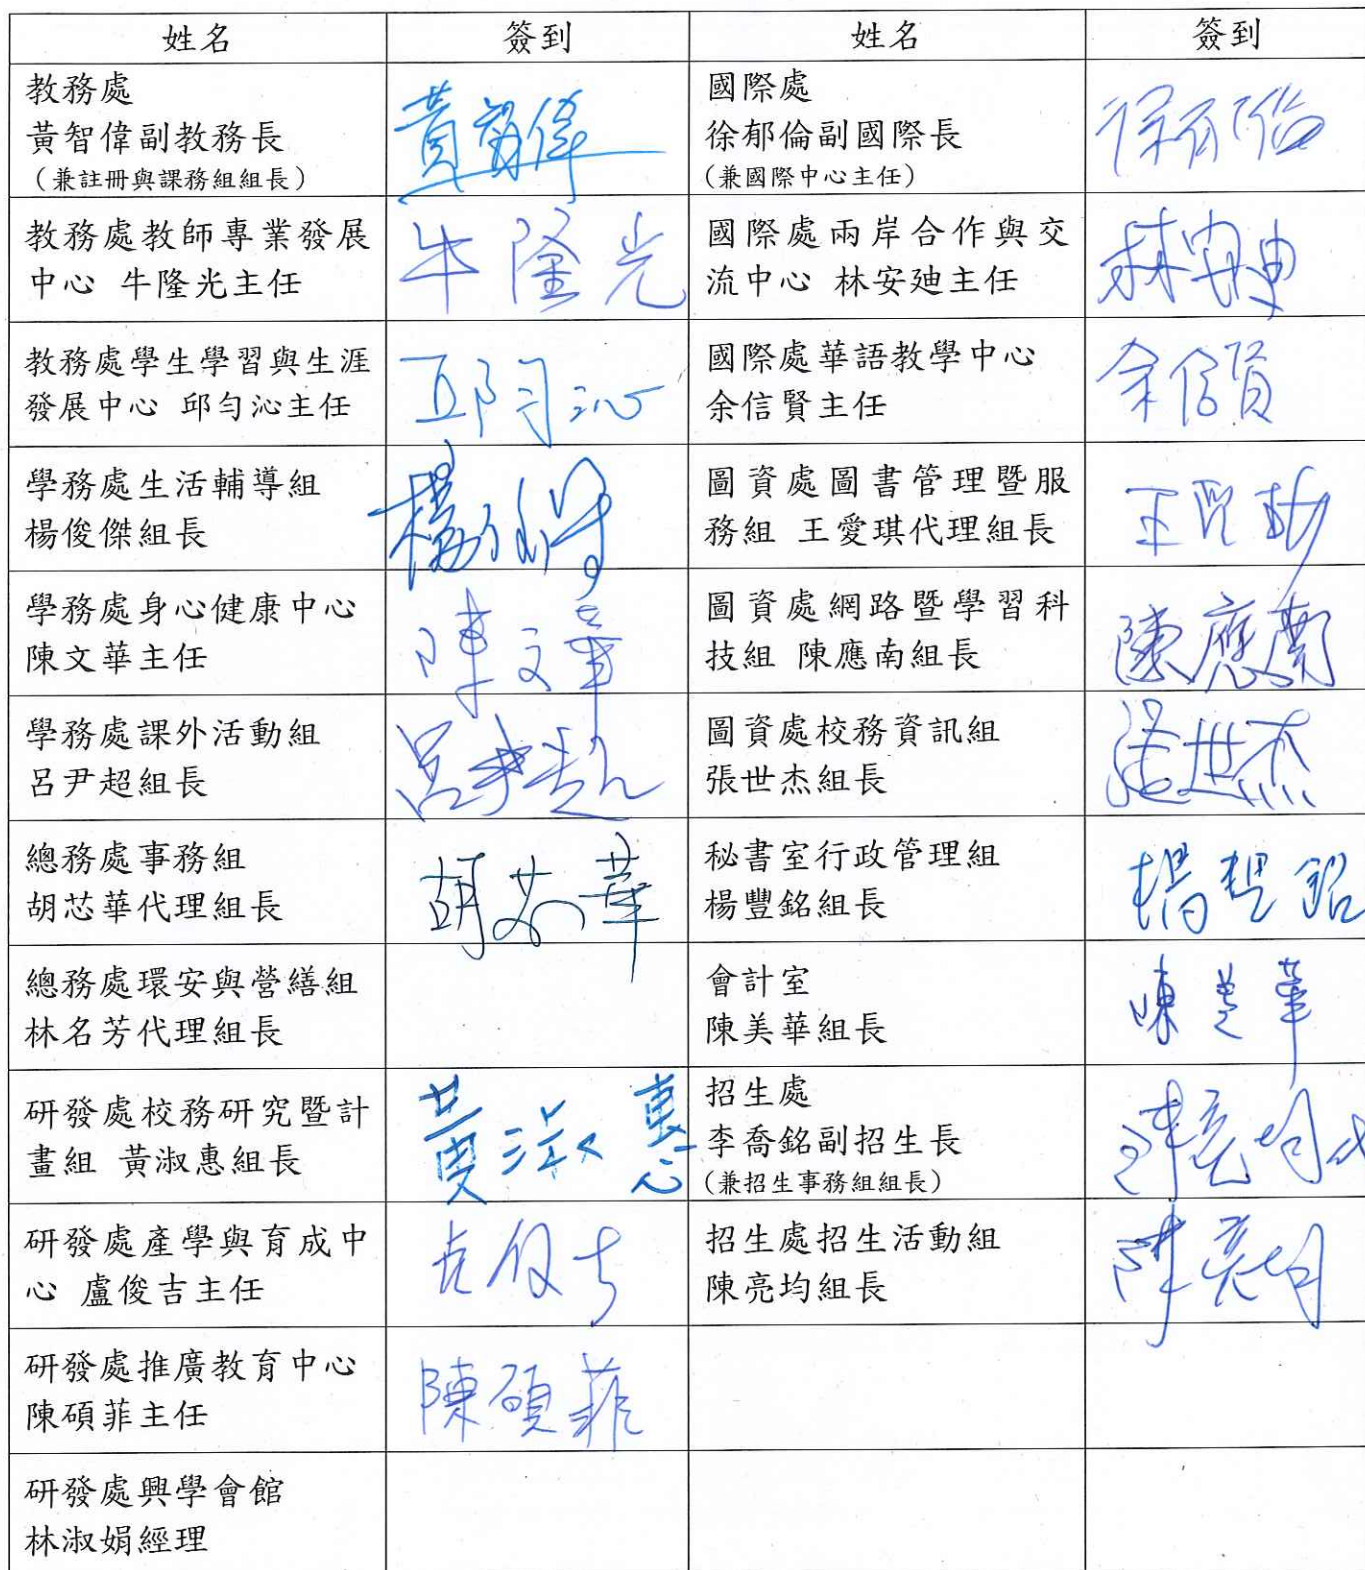 姓名 簽到 姓名 簽到
教務處
黃智偉副教務長
（兼註冊與課務組組長）
黃智偉
國際處
徐郁倫副國際長
(兼國際中心主任)
徐郁倫
教務處教師專業發展
中心 牛隆光主任
牛隆光
國際處兩岸合作與交
流中心 林安廸主任
林安廸
教務處學生學習與生涯
發展中心 邱勻沁主任
邱勻沁
國際處華語教學中心
余信賢主任
余信賢
學務處生活輔導組
楊俊傑組長
圖資處圖書管理暨服
務組 王愛琪代理組長
學務處身心健康中心
陳文華主任
陳文華
圖資處網路暨學習科
技組 陳應南組長
陳應南
學務處課外活動組
呂尹超組長
呂尹超
圖資處校務資訊組
張世杰組長
張世杰
總務處事務組
胡芯華代理組長
胡芯華
秘書室行政管理組
楊豐銘組長
楊豐銘
總務處環安與營繕組
林名芳代理組長
會計室
陳美華組長
陳美華
研發處校務研究暨計
畫組 黃淑惠組長
黃淑惠
招生處
李喬銘副招生長
(兼招生事務組組長)
陳亮均代
研發處產學與育成中
心 盧俊吉主任
招生處招生活動組
陳亮均組長
陳亮均
研發處推廣教育中心
陳碩菲主任
陳碩菲
研發處興學會館
林淑娟經理